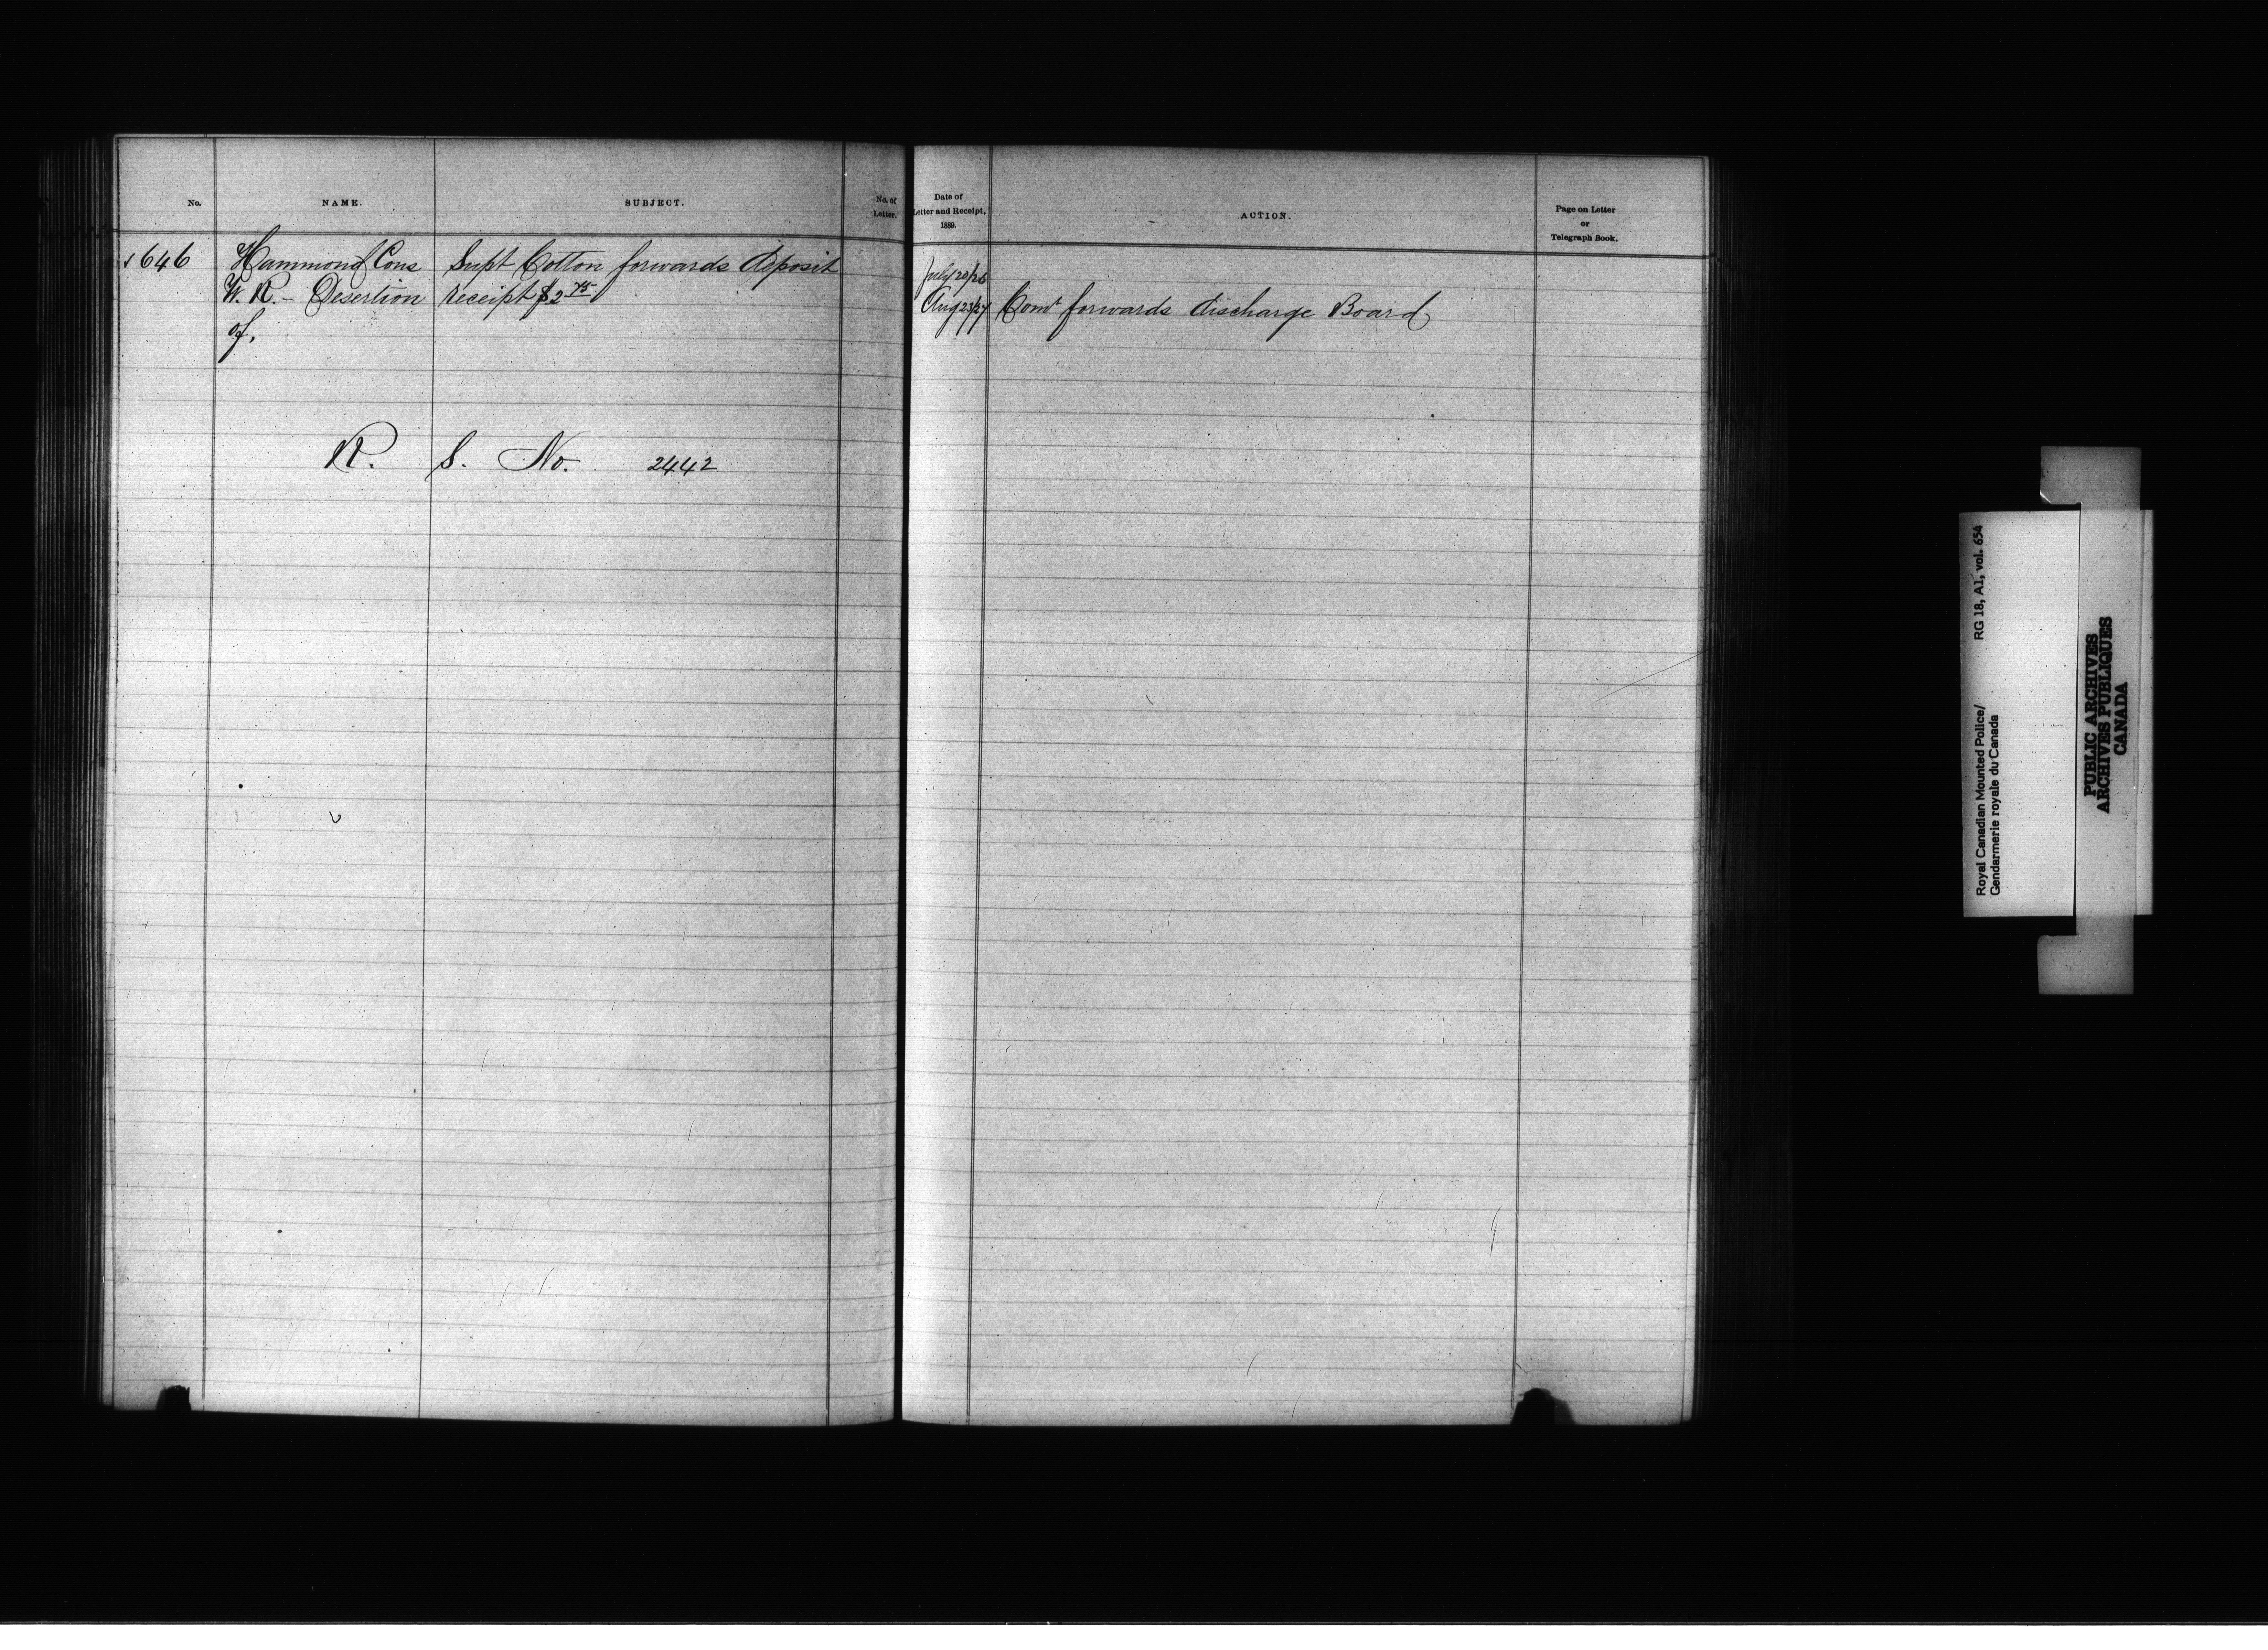 No.
NAME.
SUBJECT.
No. of
Letter.
Date of
Letter and Receipt,
1889.
ACTION.
Page on Letter
or
Telegraph Book.
646 Hammond Cons Supt Cotton forwards deposit
W. R. - Desertion receipt $2 75
of.
July 20/26
Aug 23/27 Comr forwards discharge Board
R. S. No. 2442
Royal Canadian Mounted Police/
Gendarmerie royale du Canada
RG 18, A1, vol. 654
PUBLIC ARCHIVES
ARCHIVES PUBLIQUES
CANADA